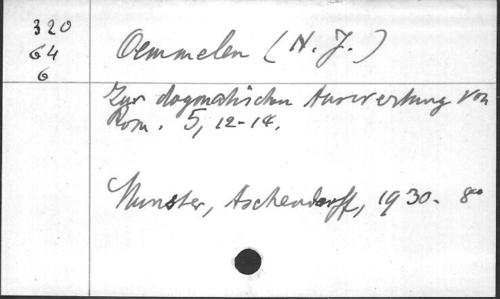 320
64
6
Oemmelen (H. J.)
Zur dogmatischen Auswertung von
Rom. 5, 12-14.
Munster, Aschendorff, 1930. 8º